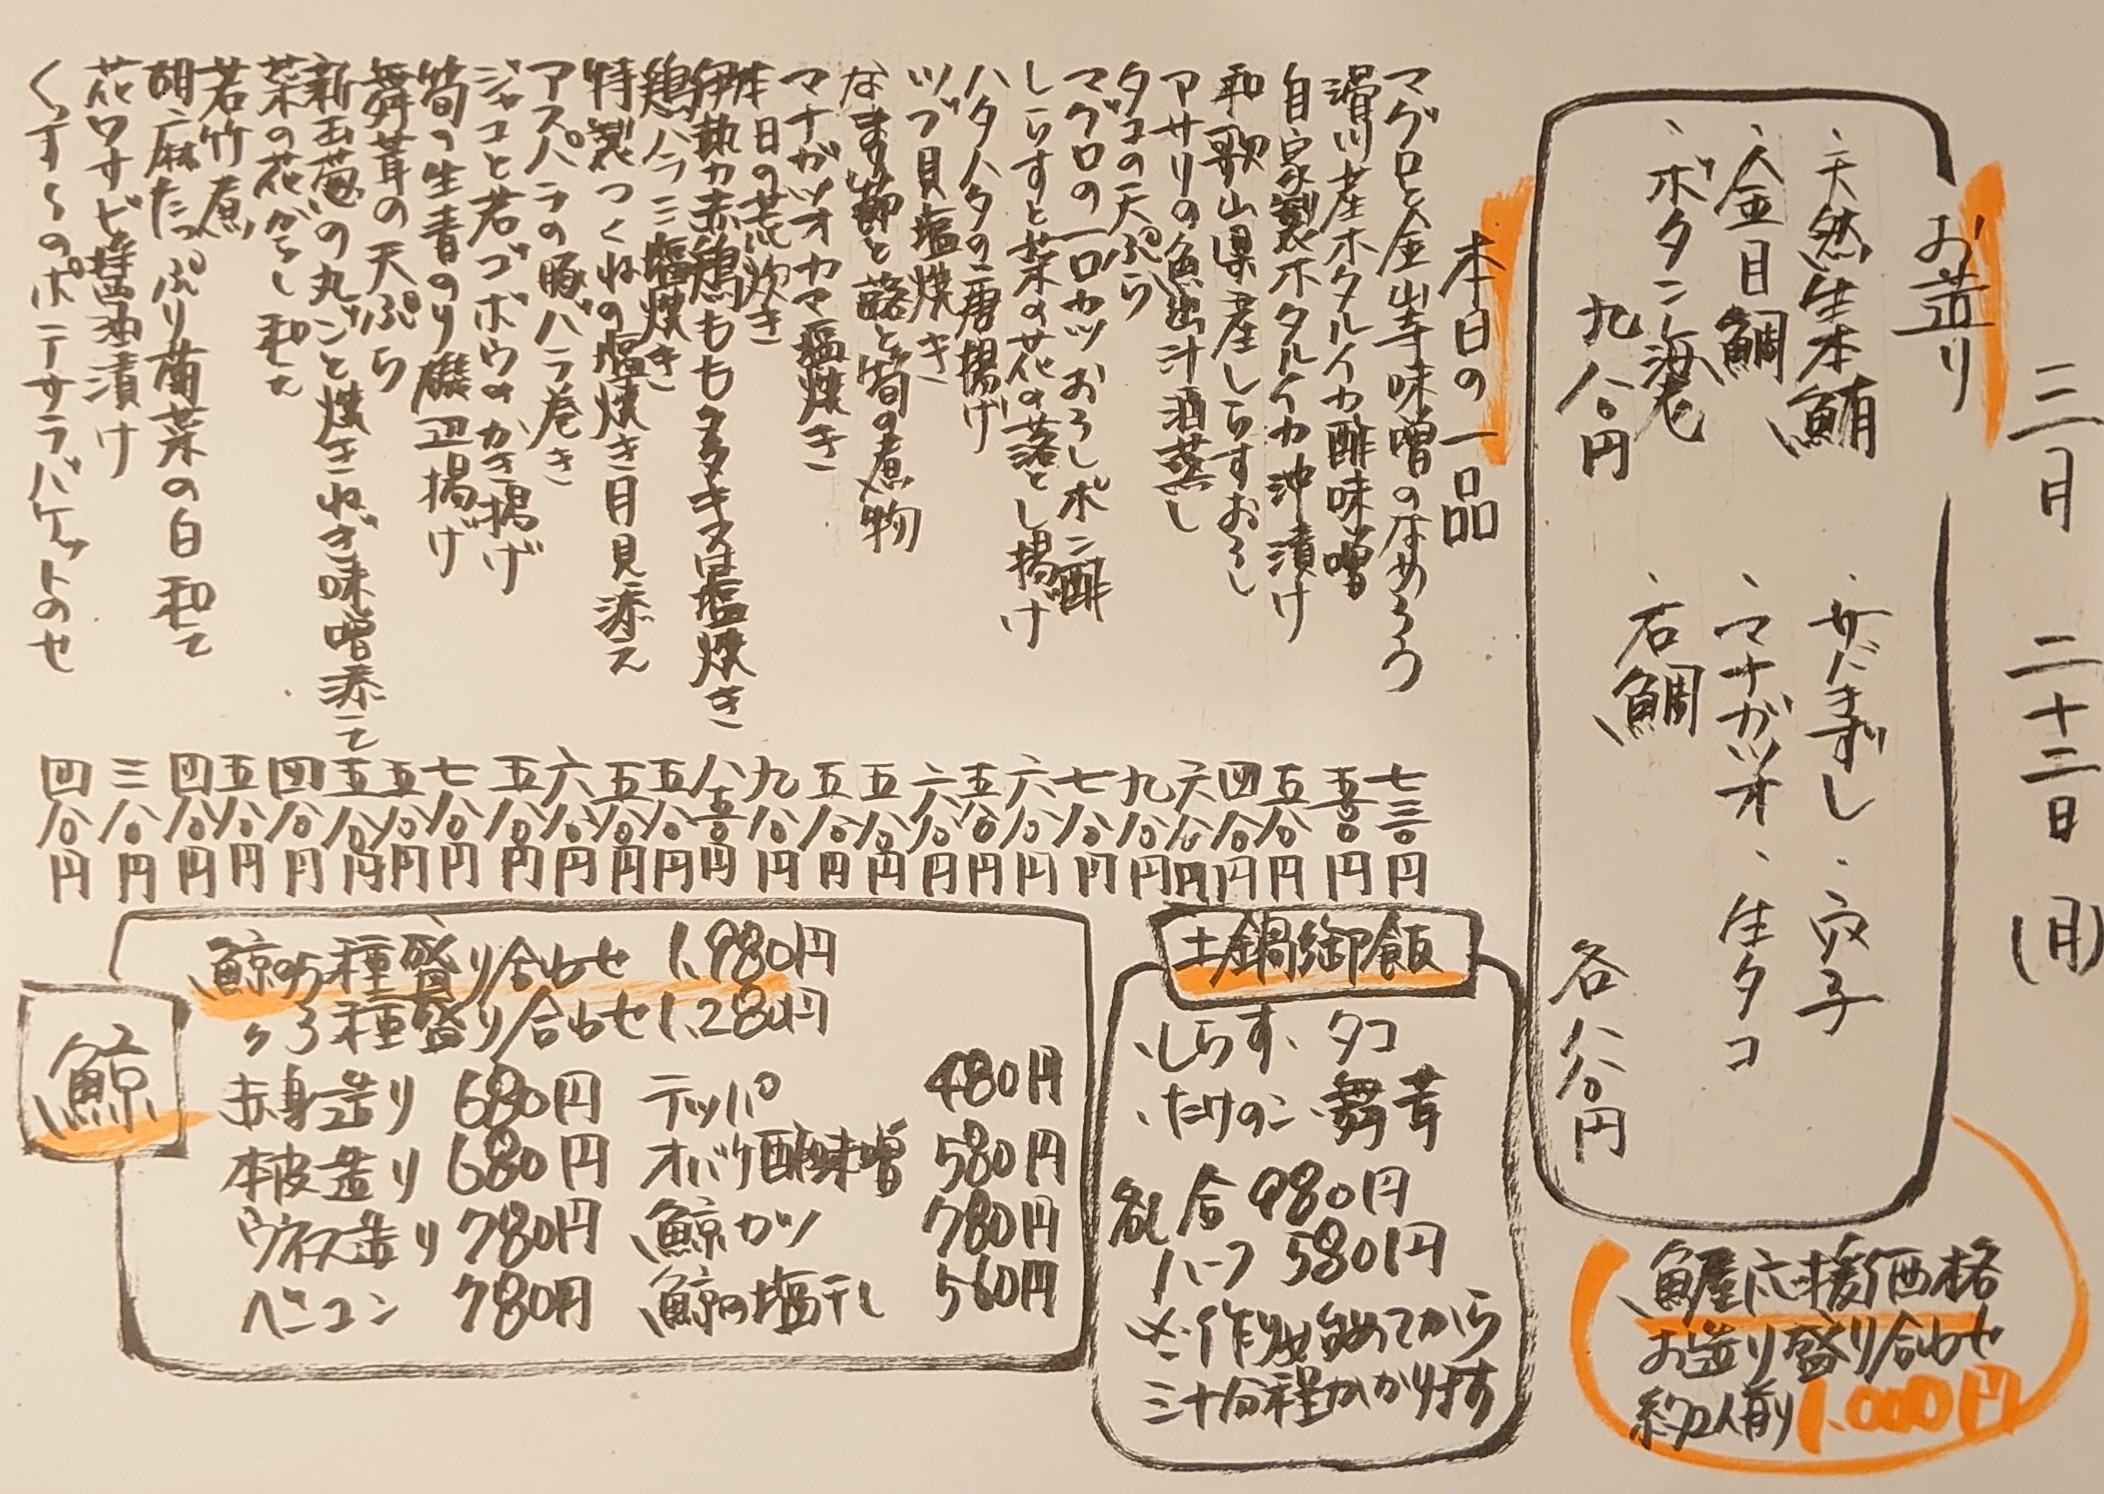 三月 二十二日 (月)
お造り
、天然生本鮪
、金目鯛
、ボタン海老
九八〇円
、サバきずし 、穴子
、マナガツオ 、生タコ
、石鯛
各八八〇円
魚屋応援価格
お造り盛り合わせ
約2人前 1,000円
本日の一品
マグロと金山寺味噌のなめろう 七三〇円
滑川産ホタルイカ酢味噌 五五〇円
自家製ホタルイカ沖漬け 五八〇円
和歌山県産しらすおろし 四八〇円
アサリの魚出汁酒蒸し 六八〇円
タコの天ぷら 九八〇円
マグロの一口カツおろしポン酢 七八〇円
しらすと菜の花の落とし揚げ 六八〇円
ハタハタの唐揚げ 五八〇円
ツブ貝塩焼き 六八〇円
なまり節と蕗と筍の煮物 五八〇円
マナガツオカマ塩焼き 五八〇円
本日の荒炊き 九八〇円
伊勢力赤鶏ももタタキ又は塩焼き 八五〇円
鶏ハラミ塩焼き 五八〇円
特製つくねの塩焼き月見添え 五八〇円
アスパラの豚バラ巻き 六八〇円
ジャコと若ゴボウのかき揚げ 五八〇円
筍の生青のり磯辺揚げ 七八〇円
舞茸の天ぷら 五八〇円
新玉葱の丸ごと焼きねぎ味噌添えて 五八〇円
菜の花からし和え 四八〇円
若竹煮 五八〇円
胡麻たっぷり菊菜の白和え 四八〇円
花ワサビ醤油漬け 三八〇円
くんすぃのポテサラバケットのせ 四八〇円
土鍋御飯
、しらす、タコ
、たけのこ、舞茸
各1合 980円
ハーフ 580円
※作り始めてから
三十分程かかります
鯨
鯨の5種盛り合わせ 1,980円
〃3種盛り合わせ 1,280円
赤身造り 680円
本皮造り 680円
ウネス造り 780円
ベーコン 780円
テッパ 480円
オバケ酢味噌 580円
鯨カツ 780円
鯨の塩干し 560円